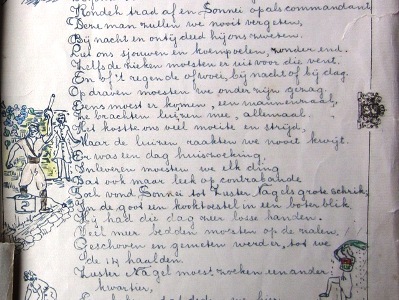 Kondeh trad af en Sonnei op als commandant,
Deze man zullen we nooit vergeten,
Bij nacht en ontij deed hij ons zweten.
Liet ons sjouwen en krempelen, zonder end.
Zelfs de zieken moesten er uit voor die vent.
En of 't regende of woei, bij nacht of bij dag.
Opdraven moesten we onder zijn gezag.
Eens moest er komen, een mannenzaal,
Ze brachten luizen me, allemaal.
Het kostte ons veel moeite en strijd,
Maar de luizen raakten we nooit kwijt.
Er was een dag huiszoeking,
Inleveren moesten we elk ding
Dat ook maar leek op contrabande
Toch vond Sonnei tot Zuster Nagels grote schrik,
In de goot een kooktoestel in een boter blik.
Hij had die dag zeer losse handen.
Veel meer bedden moesten op de zalen,
Geschoven en gemeten werd er, tot we
de 14 haalden.
Zuster Nagel moest zoeken een ander
kwartier,